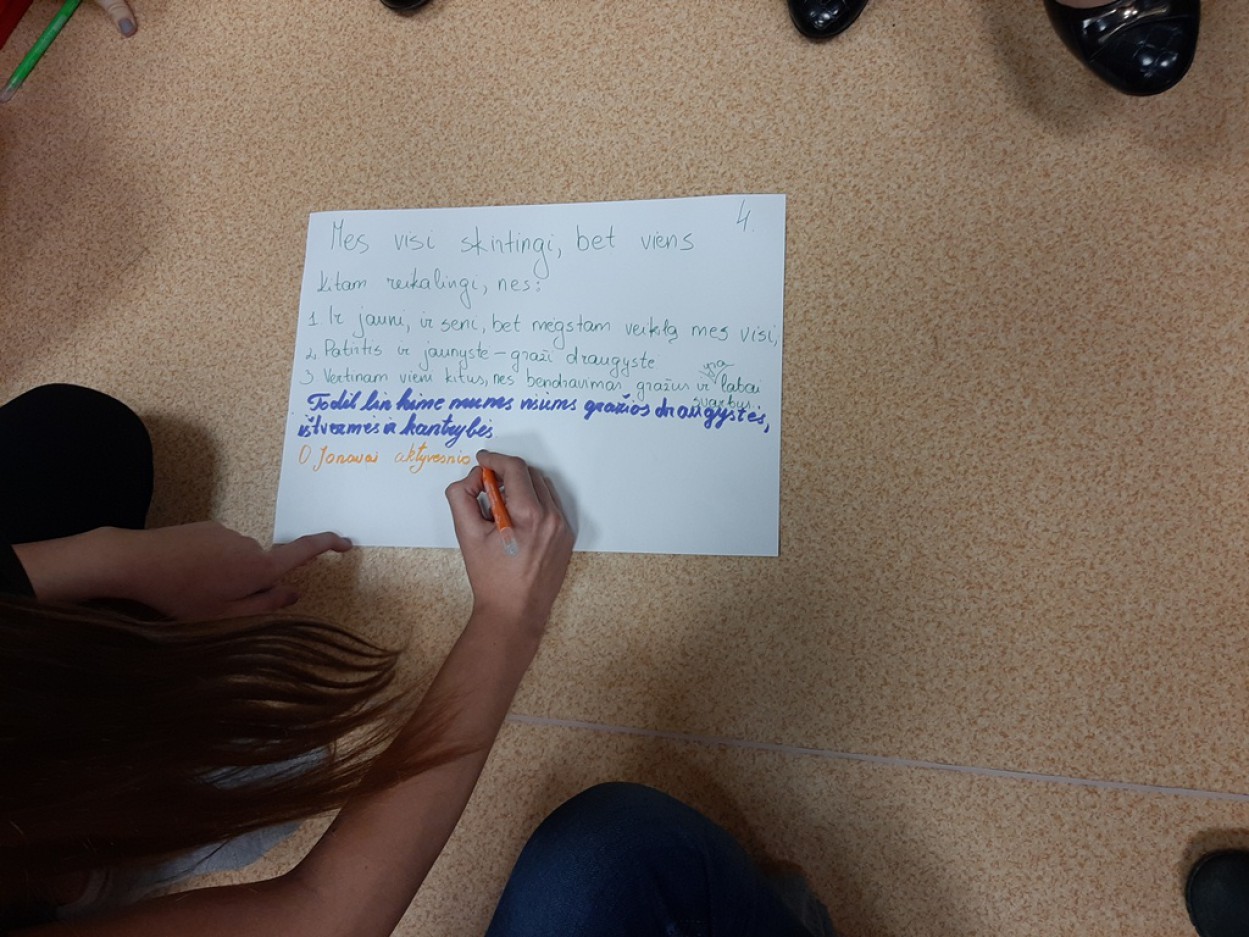 4.
Mes visi skirtingi, bet viens
kitam reikalingi, nes:
1. Ir jauni, ir seni, bet mėgstam veiklą mes visi,
2. Patirtis ir jaunystė – graži draugystė
3 Vertinam vieni kitus, nes bendravimas gražus ir yra labai
svarbus
Todėl linkime mums visiems gražios draugystės,
ištvermės ir kantrybės
O Jonavai aktyvesnio